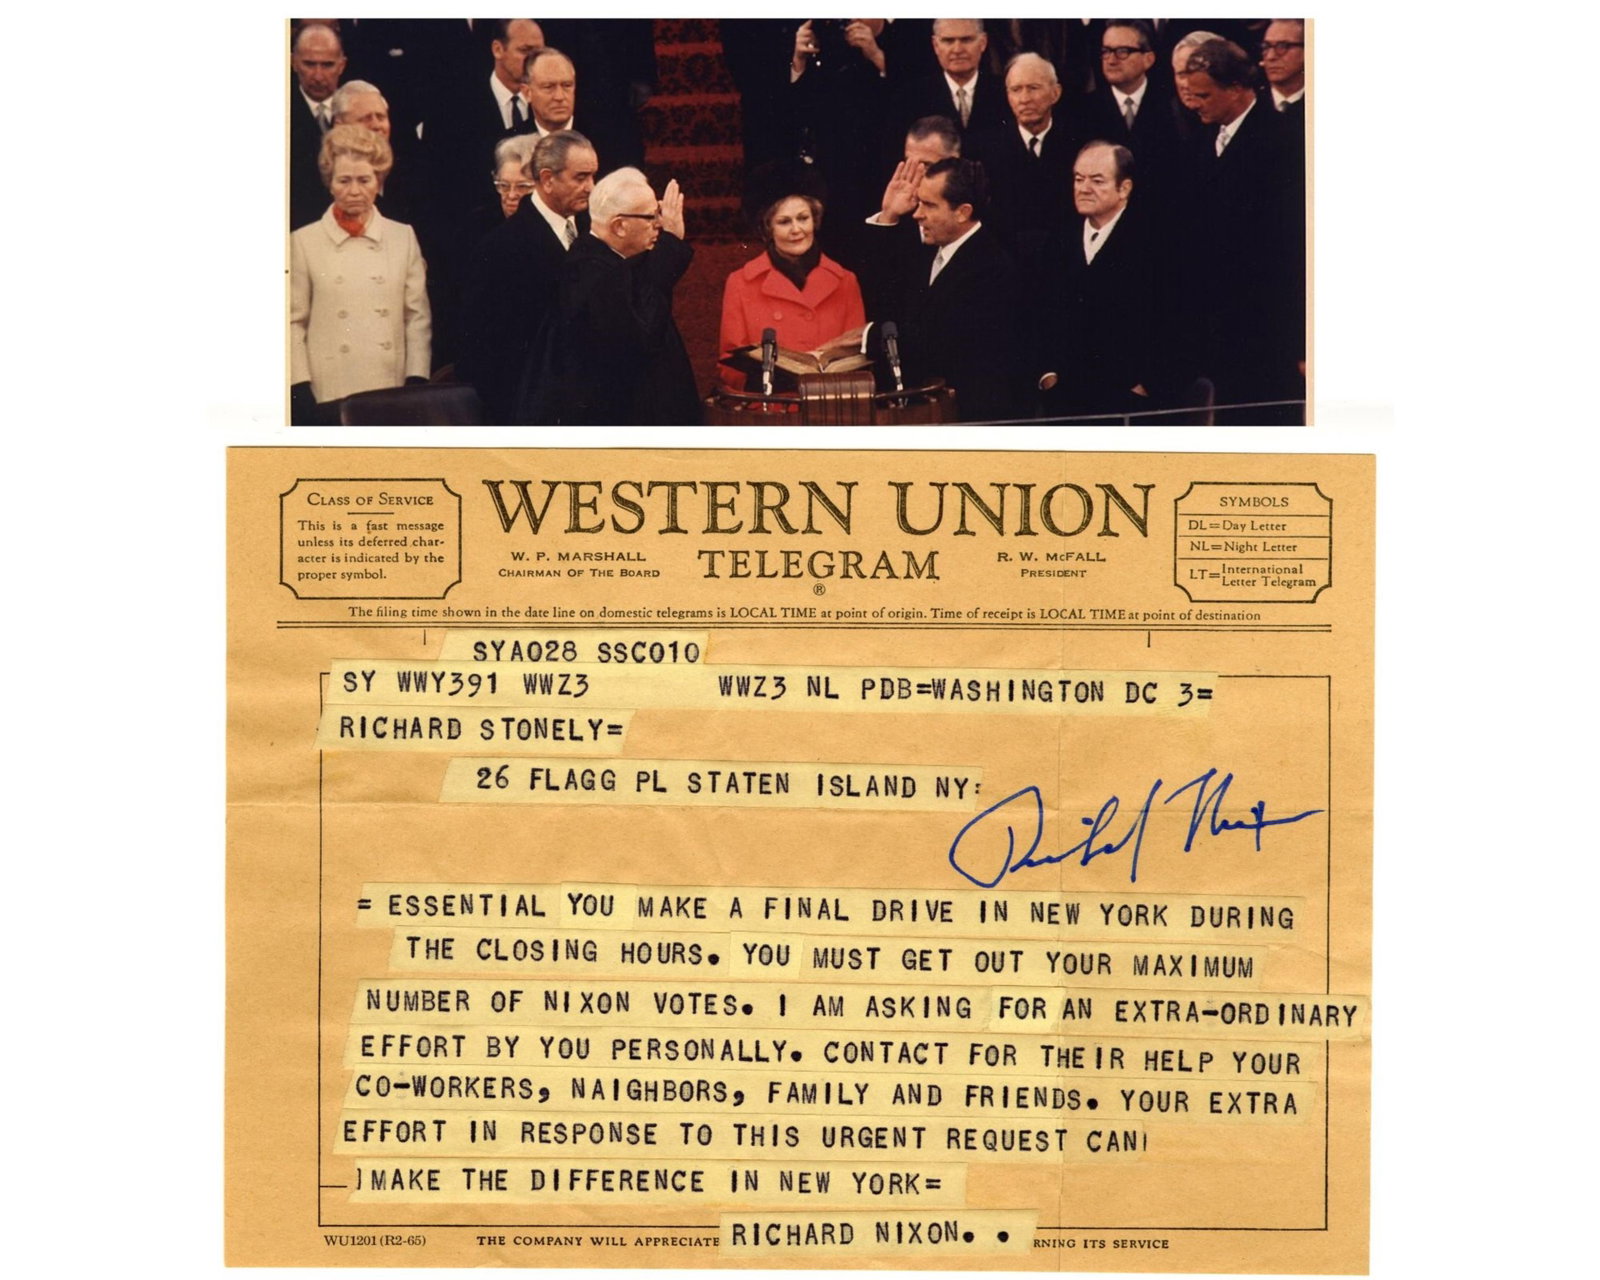 CLASS OF SERVICE
This is a fast message
unless its deferred char-
acter is indicated by the
proper symbol.
WESTERN UNION
TELEGRAM
®
W. P. MARSHALL
CHAIRMAN OF THE BOARD
R. W. McFALL
PRESIDENT
SYMBOLS
DL=Day Letter
NL=Night Letter
LT=International Letter Telegram
The filing time shown in the date line on domestic telegrams is LOCAL TIME at point of origin. Time of receipt is LOCAL TIME at point of destination
SYA028 SSC010
SY WWY391 WWZ3 WWZ3 NL PDB=WASHINGTON DC 3=
RICHARD STONELY=
26 FLAGG PL STATEN ISLAND NY:
Richard Nixon
= ESSENTIAL YOU MAKE A FINAL DRIVE IN NEW YORK DURING
THE CLOSING HOURS. YOU MUST GET OUT YOUR MAXIMUM
NUMBER OF NIXON VOTES. I AM ASKING FOR AN EXTRA-ORDINARY
EFFORT BY YOU PERSONALLY. CONTACT FOR THEIR HELP YOUR
CO-WORKERS, NAIGHBORS, FAMILY AND FRIENDS. YOUR EXTRA
EFFORT IN RESPONSE TO THIS URGENT REQUEST CAN
MAKE THE DIFFERENCE IN NEW YORK=
RICHARD NIXON. .
WU1201 (R2-65)
THE COMPANY WILL APPRECIATE RNING ITS SERVICE